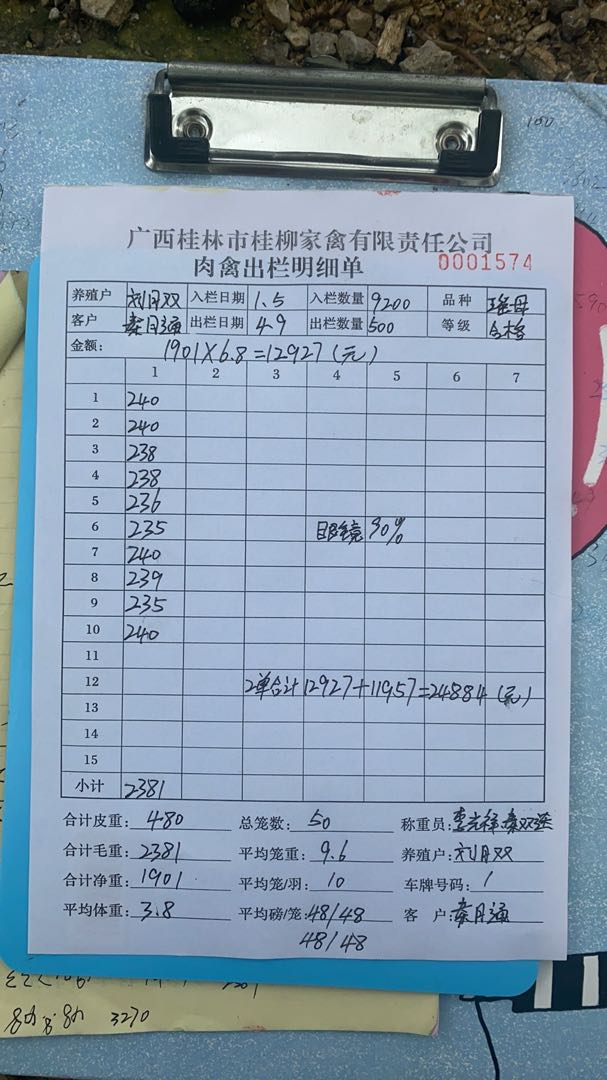 广西桂林市桂柳家禽有限责任公司
肉禽出栏明细单 0001574
养殖户 刘月双 入栏日期 1.5 入栏数量 9200 品种 瑶母
客户 秦月通 出栏日期 4.9 出栏数量 500 等级 合格
金额: 1901×6.8=12927(元)
1 2 3 4 5 6 7
1 240
2 240
3 238
4 238
5 236
6 235 眼镜 90%
7 240
8 239
9 235
10 240
11
12 2单合计12927+11957=24884(元)
13
14
15
小计 2381
合计皮重: 480 总笼数: 50 称重员:
合计毛重: 2381 平均笼重: 9.6 养殖户: 刘月双
合计净重: 1901 平均笼/羽: 10 车牌号码: /
平均体重: 3.8 平均磅/笼: 48/48 客 户: 秦月通
48/48
3270